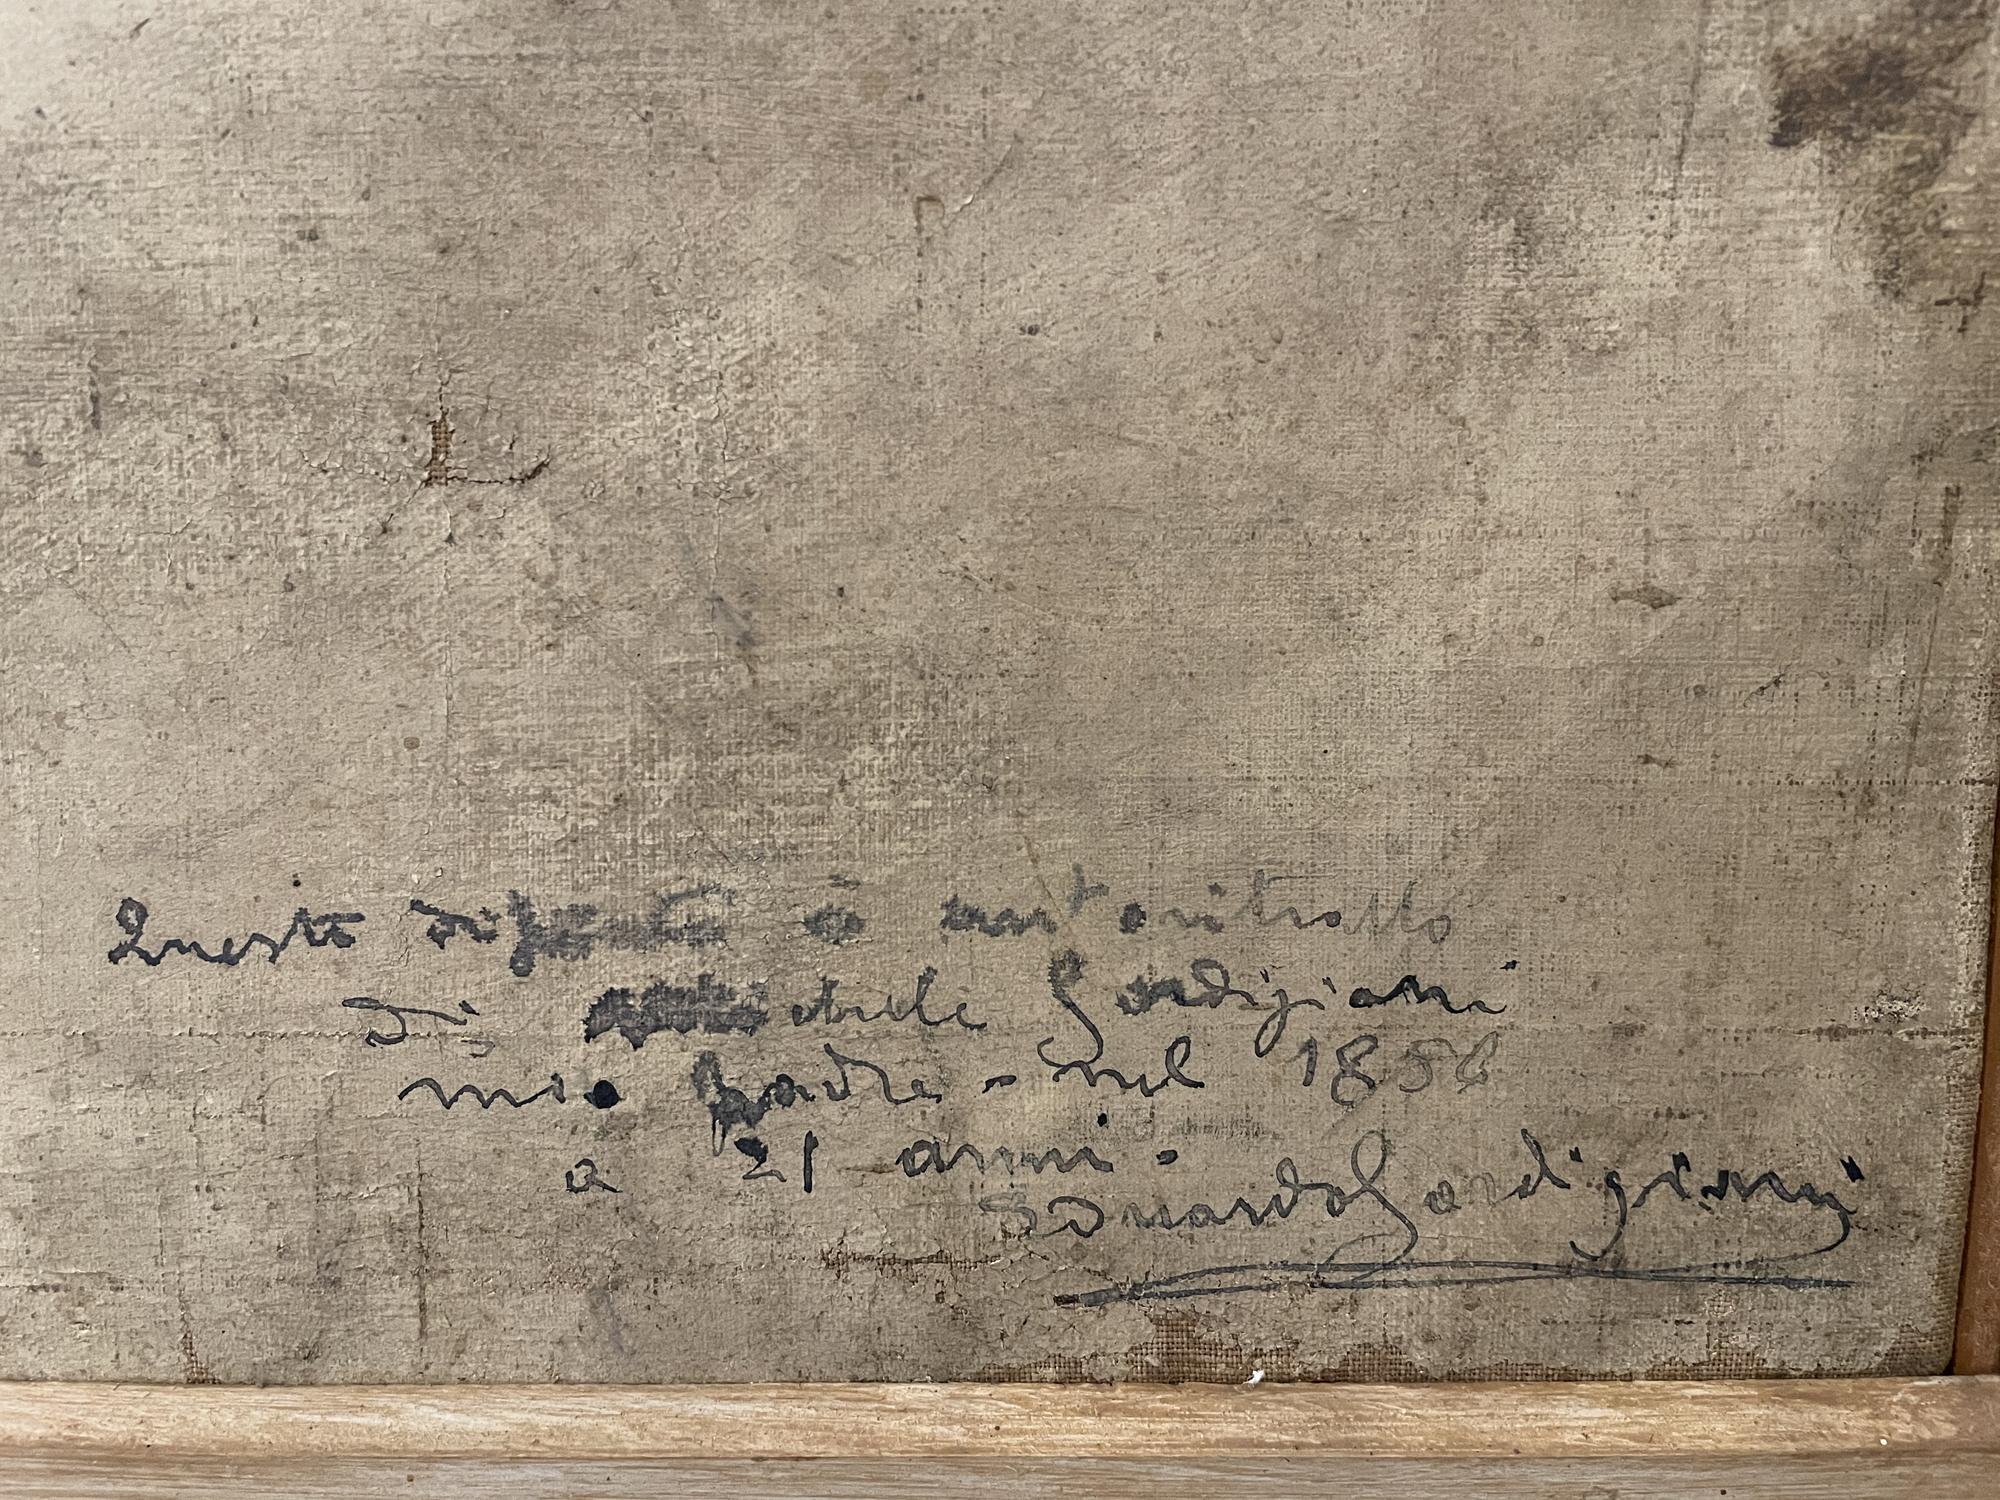 Questo dipinto è autoritratto
di Michele Gordigiani
mio padre - nel 1856
a 21 anni.
Edoardo Gordigiani